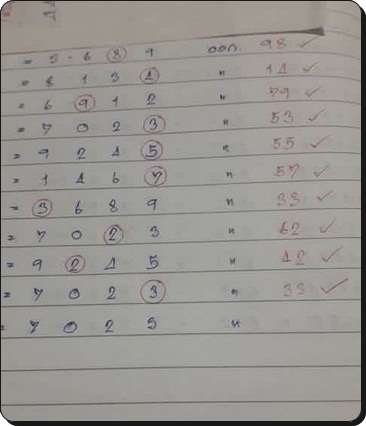 = 5 - 6 8 9 ออก. 98 ✓
= 8 1 3 4 " 14 ✓
= 6 9 1 2 " 79 ✓
= 7 0 2 3 " 53 ✓
= 9 2 4 5 " 55 ✓
= 1 4 6 7 " 57 ✓
= 3 6 8 9 " 33 ✓
= 7 0 2 3 " 62 ✓
= 9 2 4 5 " 42 ✓
= 7 0 2 3 " 33 ✓
= 7 0 2 5 "